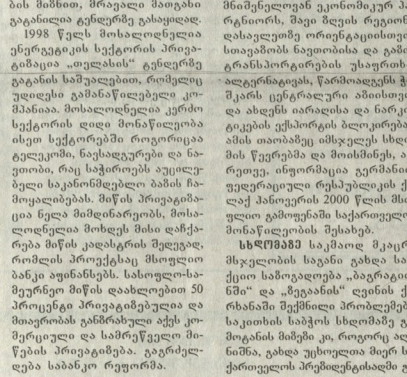 ბის მიზნით, მრავალი მათგანი
გატანილია ტენდერზე გასაყიდად.
1998 წელს მოსალოდნელია
ენერგეტიკის სექტორის პრივა-
ტიზაცია „თელასის“ ტენდერზე
გატანის საშუალებით, რომელიც
უდიდესი გამანაწილებელი კო-
მპანიაა. მოსალოდნელია კერძო
სექტორის დიდი მონაწილეობა
ისეთ სექტორებში როგორიცაა
ტელეკომი, ნავსადგურები და ნა-
ვთობი, რაც საჭიროებს აუცილე-
ბელი საკანონმდებლო ბაზის ჩა-
მოყალიბებას. მიწის პრივატიზა-
ცია ნელა მიმდინარეობს, მოსა-
ლოდნელია მოხდეს მისი დაჩქა-
რება მიწის კადასტრის შედეგად,
რომლის პროექტსაც მსოფლიო
ბანკი აფინანსებს. სასოფლო-სა-
მეურნეო მიწის დაახლოებით 50
პროცენტი პრივატიზებულია და
მთავრობას განზრახული აქვს კო-
მერციული და სამრეწველო მი-
წების პრივატიზება. გაგრძელ-
დება საბანკო რეფორმა.
მნიშვნელოვან ეკონომიკურ
რტნიორს, შავი ზღვის რეგიონ
დასავლეთზე ორიენტაციისთვი
სთავაზობს ნავთობისა და გაზი
ტრანსპორტირების უსაფრთხ
ალტერნატივას, წარმოადგენს
შკარს ცენტრალური აზიისთვი
და ახდენს იარაღისა და ნარკო
ტიკების ექსპორტის ბლოკირება
ამის თაობაზეც იმსჯელეს სხდო
მის წევრებმა და მოისმინეს, ა
რეთვე, ინფორმაცია გერმანი
ფედერაციული რესპუბლიკის ქ
ლაქ ჰანოვერის 2000 წლის მსო
ფლიო გამოფენაში საქართველო
მონაწილეობის შესახებ.
სხდომაზე საკმაოდ მკაცრ
მსჯელობის საგანი გახდა სა
ქციო საზოგადოება „ბაგრატიო
ნში“ და „ზეგაანის“ ღვინის ქ
რხანაში შექმნილი პრობლემებ
საკითხის საბჭოს სხდომაზე გ
მოტანის მიზეზი კი, როგორც აღ
ნიშნა, გახდა უცხოელთა მიერ ს
ქართველოს პრეზიდენტისადმი